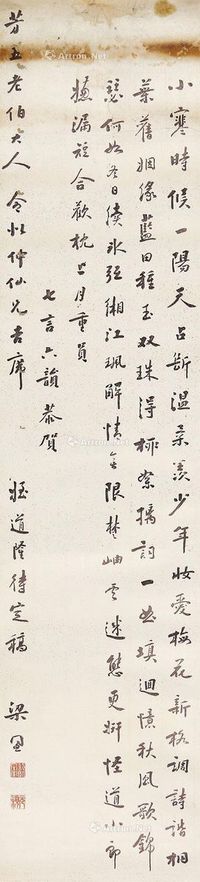 小寒時候一陽天占斷溫柔羨少年妝愛梅花新格調詩諧桐
葉舊姻緣藍田種玉双珠得摛詞一曲填迴憶秋風歌錦
瑟何如冬日續冰弦湘江珮解情無限楚岫雲迷態更妍怪道小郎
漏短合歡枕上月重員
七言六韻恭賀
芳五老伯大人 令似仲仙兄吉席 姪道隆待定稿 梁